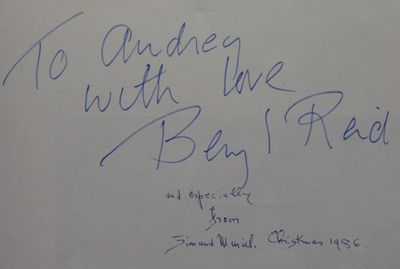 To Audrey
with love
Beryl Reid
and especially
from
Simon and Muriel. Christmas 1986.